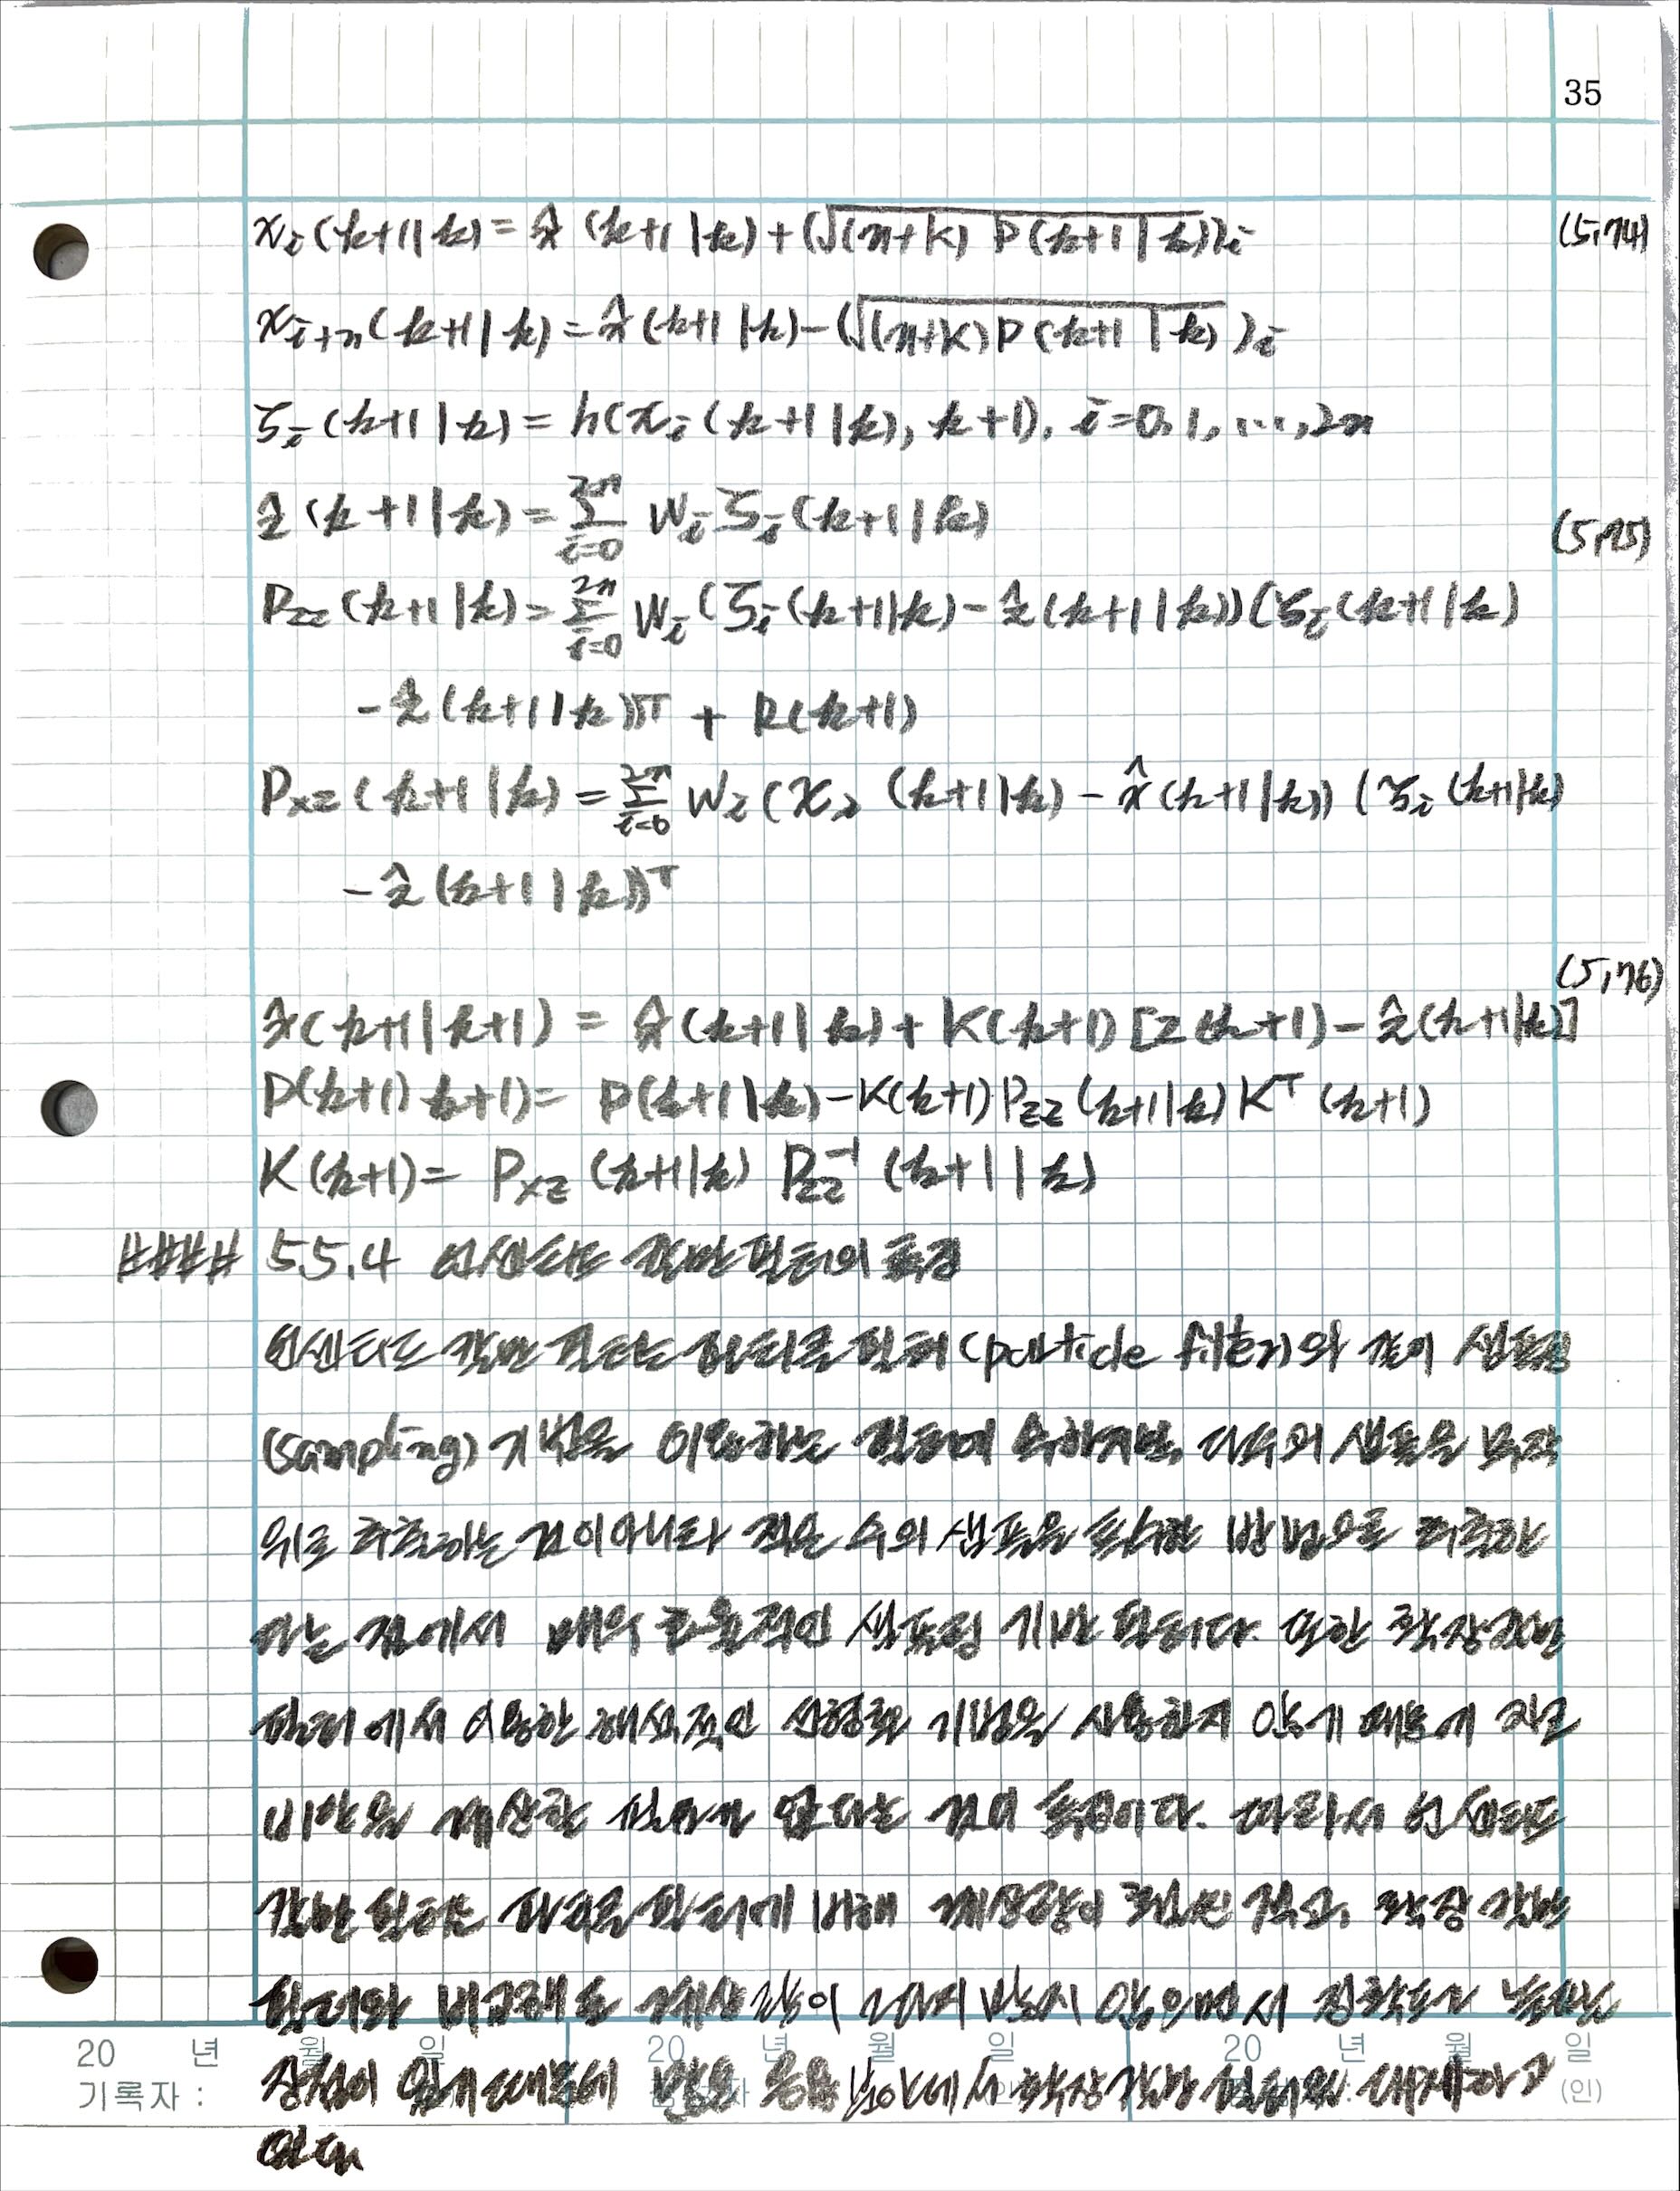 35
χᵢ(k+1|k) = x̂(k+1|k) + (√(n+κ) P(k+1|k))ᵢ (5.74)
χᵢ₊ₙ(k+1|k) = x̂(k+1|k) − (√(n+κ)P(k+1|k))ᵢ
ζᵢ(k+1|k) = h(χᵢ(k+1|k), k+1), i=0,1,...,2n
ẑ(k+1|k) = Σ_{i=0}^{2n} Wᵢ ζᵢ(k+1|k) (5.75)
P_zz(k+1|k) = Σ_{i=0}^{2n} Wᵢ(ζᵢ(k+1|k) − ẑ(k+1|k))(ζᵢ(k+1|k)
− ẑ(k+1|k))ᵀ + R(k+1)
P_xz(k+1|k) = Σ_{i=0}^{2n} Wᵢ(χᵢ(k+1|k) − x̂(k+1|k))(ζᵢ(k+1|k)
− ẑ(k+1|k))ᵀ
(5.76)
x̂(k+1|k+1) = x̂(k+1|k) + K(k+1)[z(k+1) − ẑ(k+1|k)]
P(k+1|k+1) = P(k+1|k) − K(k+1)P_zz(k+1|k)Kᵀ(k+1)
K(k+1) = P_xz(k+1|k) P_zz⁻¹(k+1|k)
#### 5.5.4 언센티드 칼만 필터의 특징
언센티드 칼만 필터는 파티클 필터(particle filter)와 같이 샘플링
(sampling) 기법을 이용하는 필터에 속하지만, 다수의 샘플을 무작
위로 추출하는 것이 아니라 적은 수의 샘플을 특수한 방법으로 추출한
다는 점에서 매우 효율적인 샘플링 기반 필터다. 또한 확장칼만
필터에서 이용한 해석적인 선형화 기법을 사용하지 않기 때문에 자코
비안을 계산할 필요가 없다는 것이 특징이다. 따라서 언센티드
칼만 필터는 파티클 필터에 비해 계산량이 훨씬 적고, 확장 칼만
필터와 비교해도 계산량이 그다지 많지 않으면서 정확도가 높다는
20 년 월 일 20 년 월 일 20 년 월 일
장점이 있기 때문에 많은 응용 분야에서 확장 칼만 필터를 대체하고
기록자 : (인)
있다.